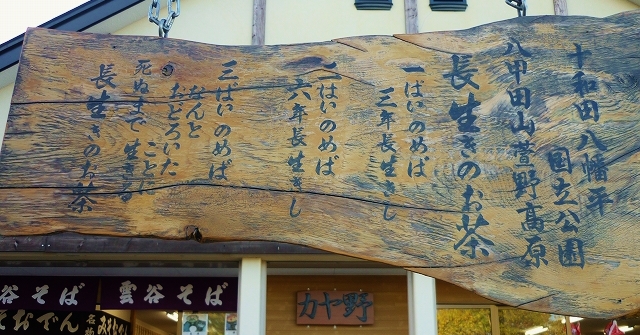 十和田八幡平
国立公園
八甲田山萱野高原
長生きのお茶
一ぱいのめば
三年長生きし
二はいのめば
六年長生きし
三ばいのめば
なんと
おどろいた
ことに
死ぬまで生きる
長生きのお茶
谷そば
雲谷そば
おでん
野ヤカ